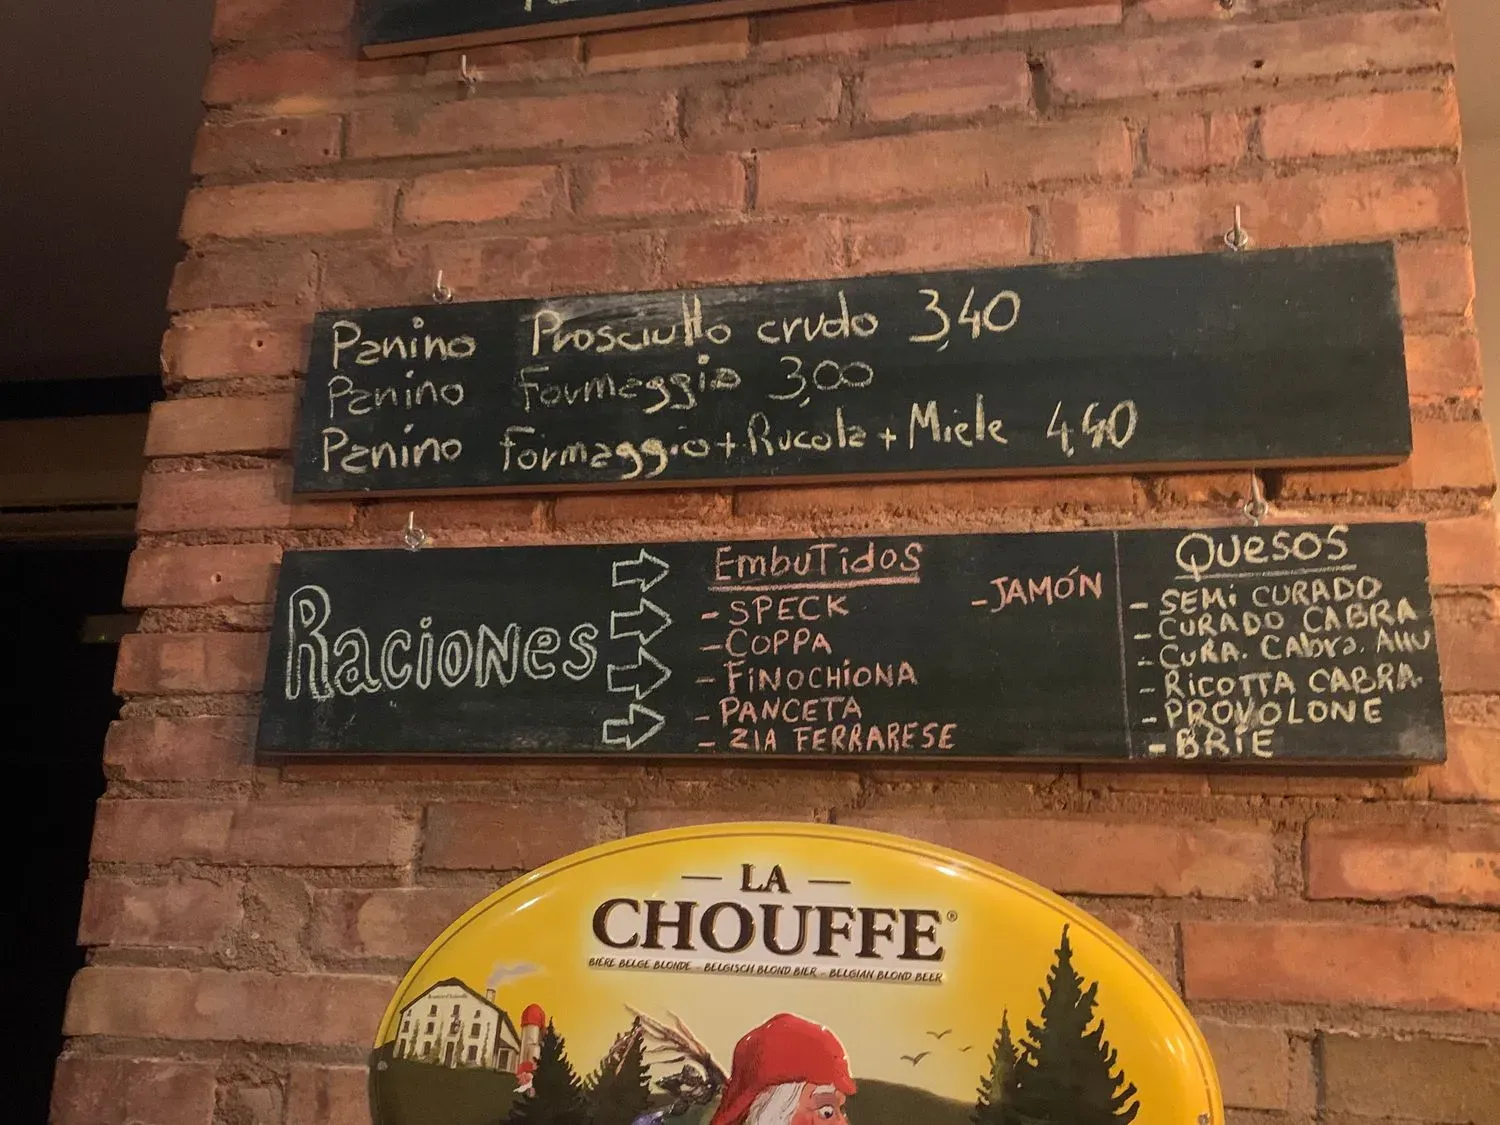 Panino Prosciutto crudo 3,40
Panino Formaggio 3,00
Panino Formaggio + Rucola + Miele 4,40
Raciones
EmbuTidos
- SPECK
- COPPA
- FiNOCHiONA
- PANCETA
- ZIA FERRARESE
- JAMÓN
Quesos
- SEMi CURADO
- CURADO CABRA
- CURA. CAbra.
- RiCOTTA CABRA
- PROVOLONE
- BRIE
— LA —
CHOUFFE®
BIÈRE BELGE BLONDE - BELGISCH BLOND BIER - BELGIAN BLOND BEER